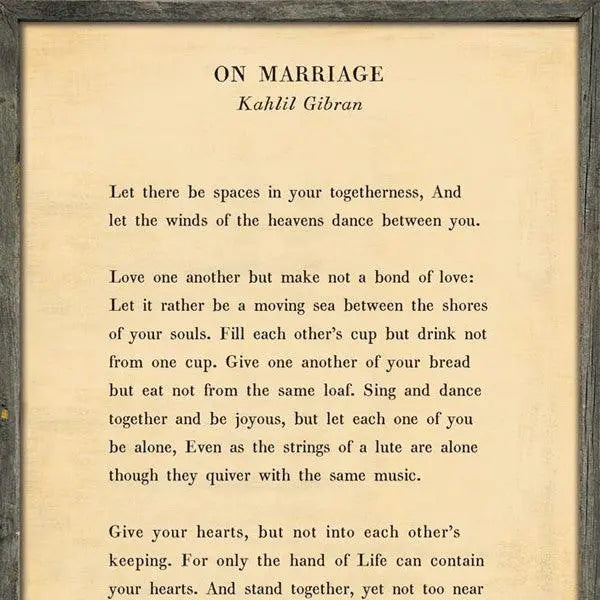 ON MARRIAGE
Kahlil Gibran
Let there be spaces in your togetherness, And
let the winds of the heavens dance between you.
Love one another but make not a bond of love:
Let it rather be a moving sea between the shores
of your souls. Fill each other's cup but drink not
from one cup. Give one another of your bread
but eat not from the same loaf. Sing and dance
together and be joyous, but let each one of you
be alone, Even as the strings of a lute are alone
though they quiver with the same music.
Give your hearts, but not into each other's
keeping. For only the hand of Life can contain
your hearts. And stand together, yet not too near